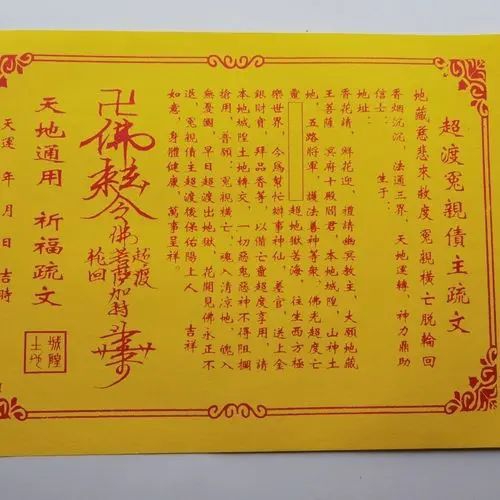 超渡冤親債主疏文
地藏慈悲來救度 冤親橫亡脫輪回
香烟沉沉,法通三界,天地運轉,神力鼎助
信士: 生于:
地址:
香花請,鮮花迎,禮請幽冥教主,大願地藏
王菩薩,冥府十殿閻君,本地城隍,山神土
地,五路將軍,護法善神等衆,佛光超度亡
靈 超地獄苦海,往生西方極
樂世界,今爲幫忙辦事神仙、善官,送上金
銀財寶,拜品香等,以備亡靈超度享用,請
本地城隍土地轉交,一切惡鬼惡神不得阻攔
搶用,普願:冤親橫亡,魂入清凉地,魄入
無憂園,早日超渡出地獄,花開見佛永正不
退,冤親債主超渡後保佑陽上人 吉祥
如意,身體健康,萬事呈祥。
卍佛敕令佛菩薩加持
超渡
輪回
天地通用 祈福疏文
城隍
土地
天運 年 月 日 吉時